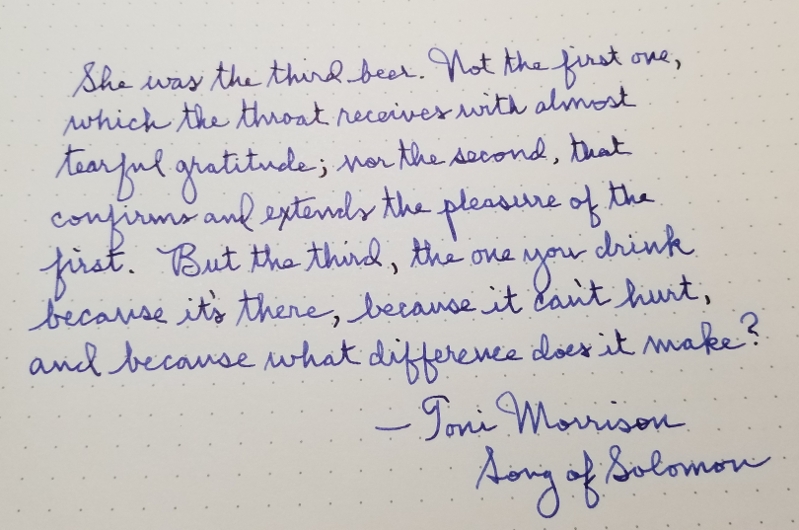 She was the third beer. Not the first one,
which the throat receives with almost
tearful gratitude; nor the second, that
confirms and extends the pleasure of the
first. But the third, the one you drink
because it's there, because it can't hurt,
and because what difference does it make?
— Toni Morrison
Song of Solomon